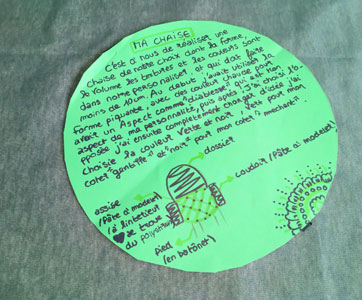 MA CHAISE
C'est à nous de réaliser une
chaise de notre choix dont la forme,
le volume les textures et les couleurs sont
dans notre personnalisé, et qui doit faire
moins de 10cm. Au début j'avais utiliser la
forme piquante, avec des couleurs chaude pour
avoir un Aspect comme
aspect de ma personnalité, puis après j'ai choisi
opposé j'ai ensuite complètement changer d'idée j'ai
choisie la couleur verte et noir. Vert pour mon
coter "gentille" et "noir" pour mon coter "méchant".
dossier
coussin (pâte à modeler)
assise
(Pâte à modeler)
(à l'intérieur
se trouve
du polystyrène)
pied
(en batônet)